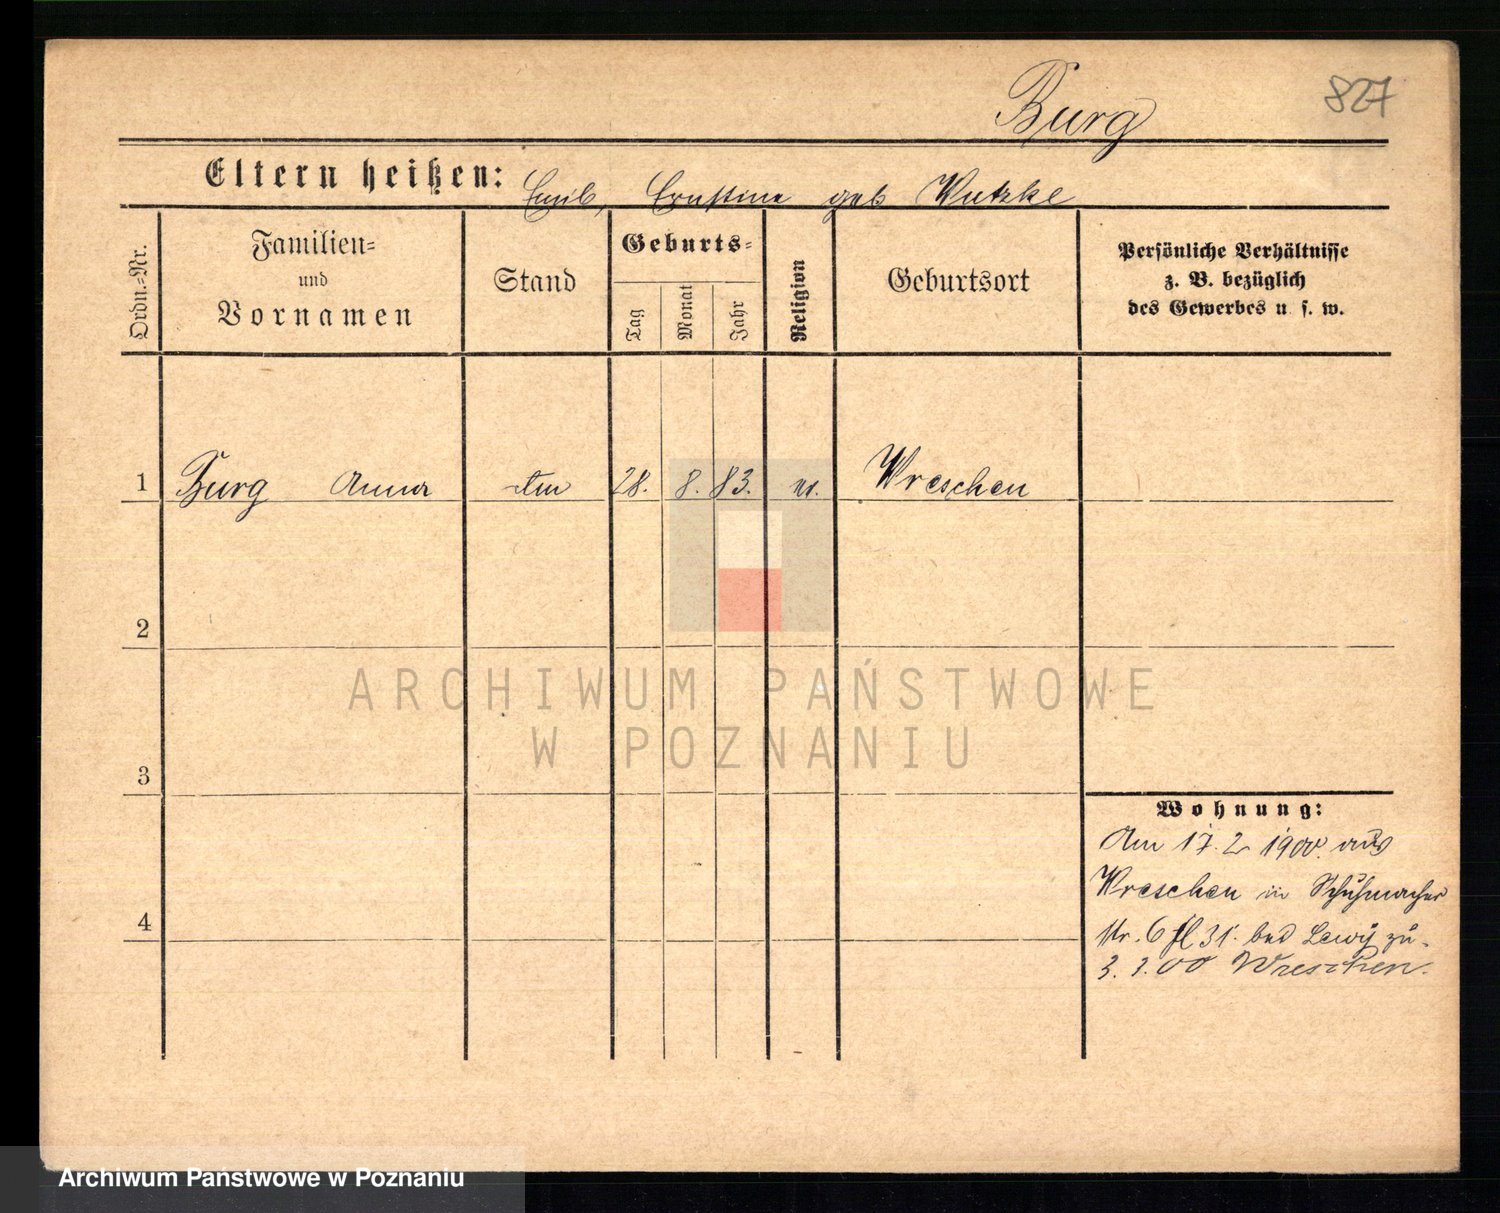 Burg 827
Eltern heißen: Emil, Ernstine geb Wutzke
Ordn.=Nr.
Familien=
und
Vornamen
Stand
Geburts=
Tag
Monat
Jahr
Religion
Geburtsort
Persönliche Verhältnisse
z. B. bezüglich
des Gewerbes u. s. w.
1 Burg Anna 28. 8. 83. Wreschen
2
3
4
Wohnung:
Am 17. 2 1900. aus
Wreschen in Schuhmacher
str. 6 31. Lewy zu.
3. 3. 00 Wreschen.
ARCHIWUM PAŃSTWOWE
W POZNANIU
Archiwum Państwowe w Poznaniu